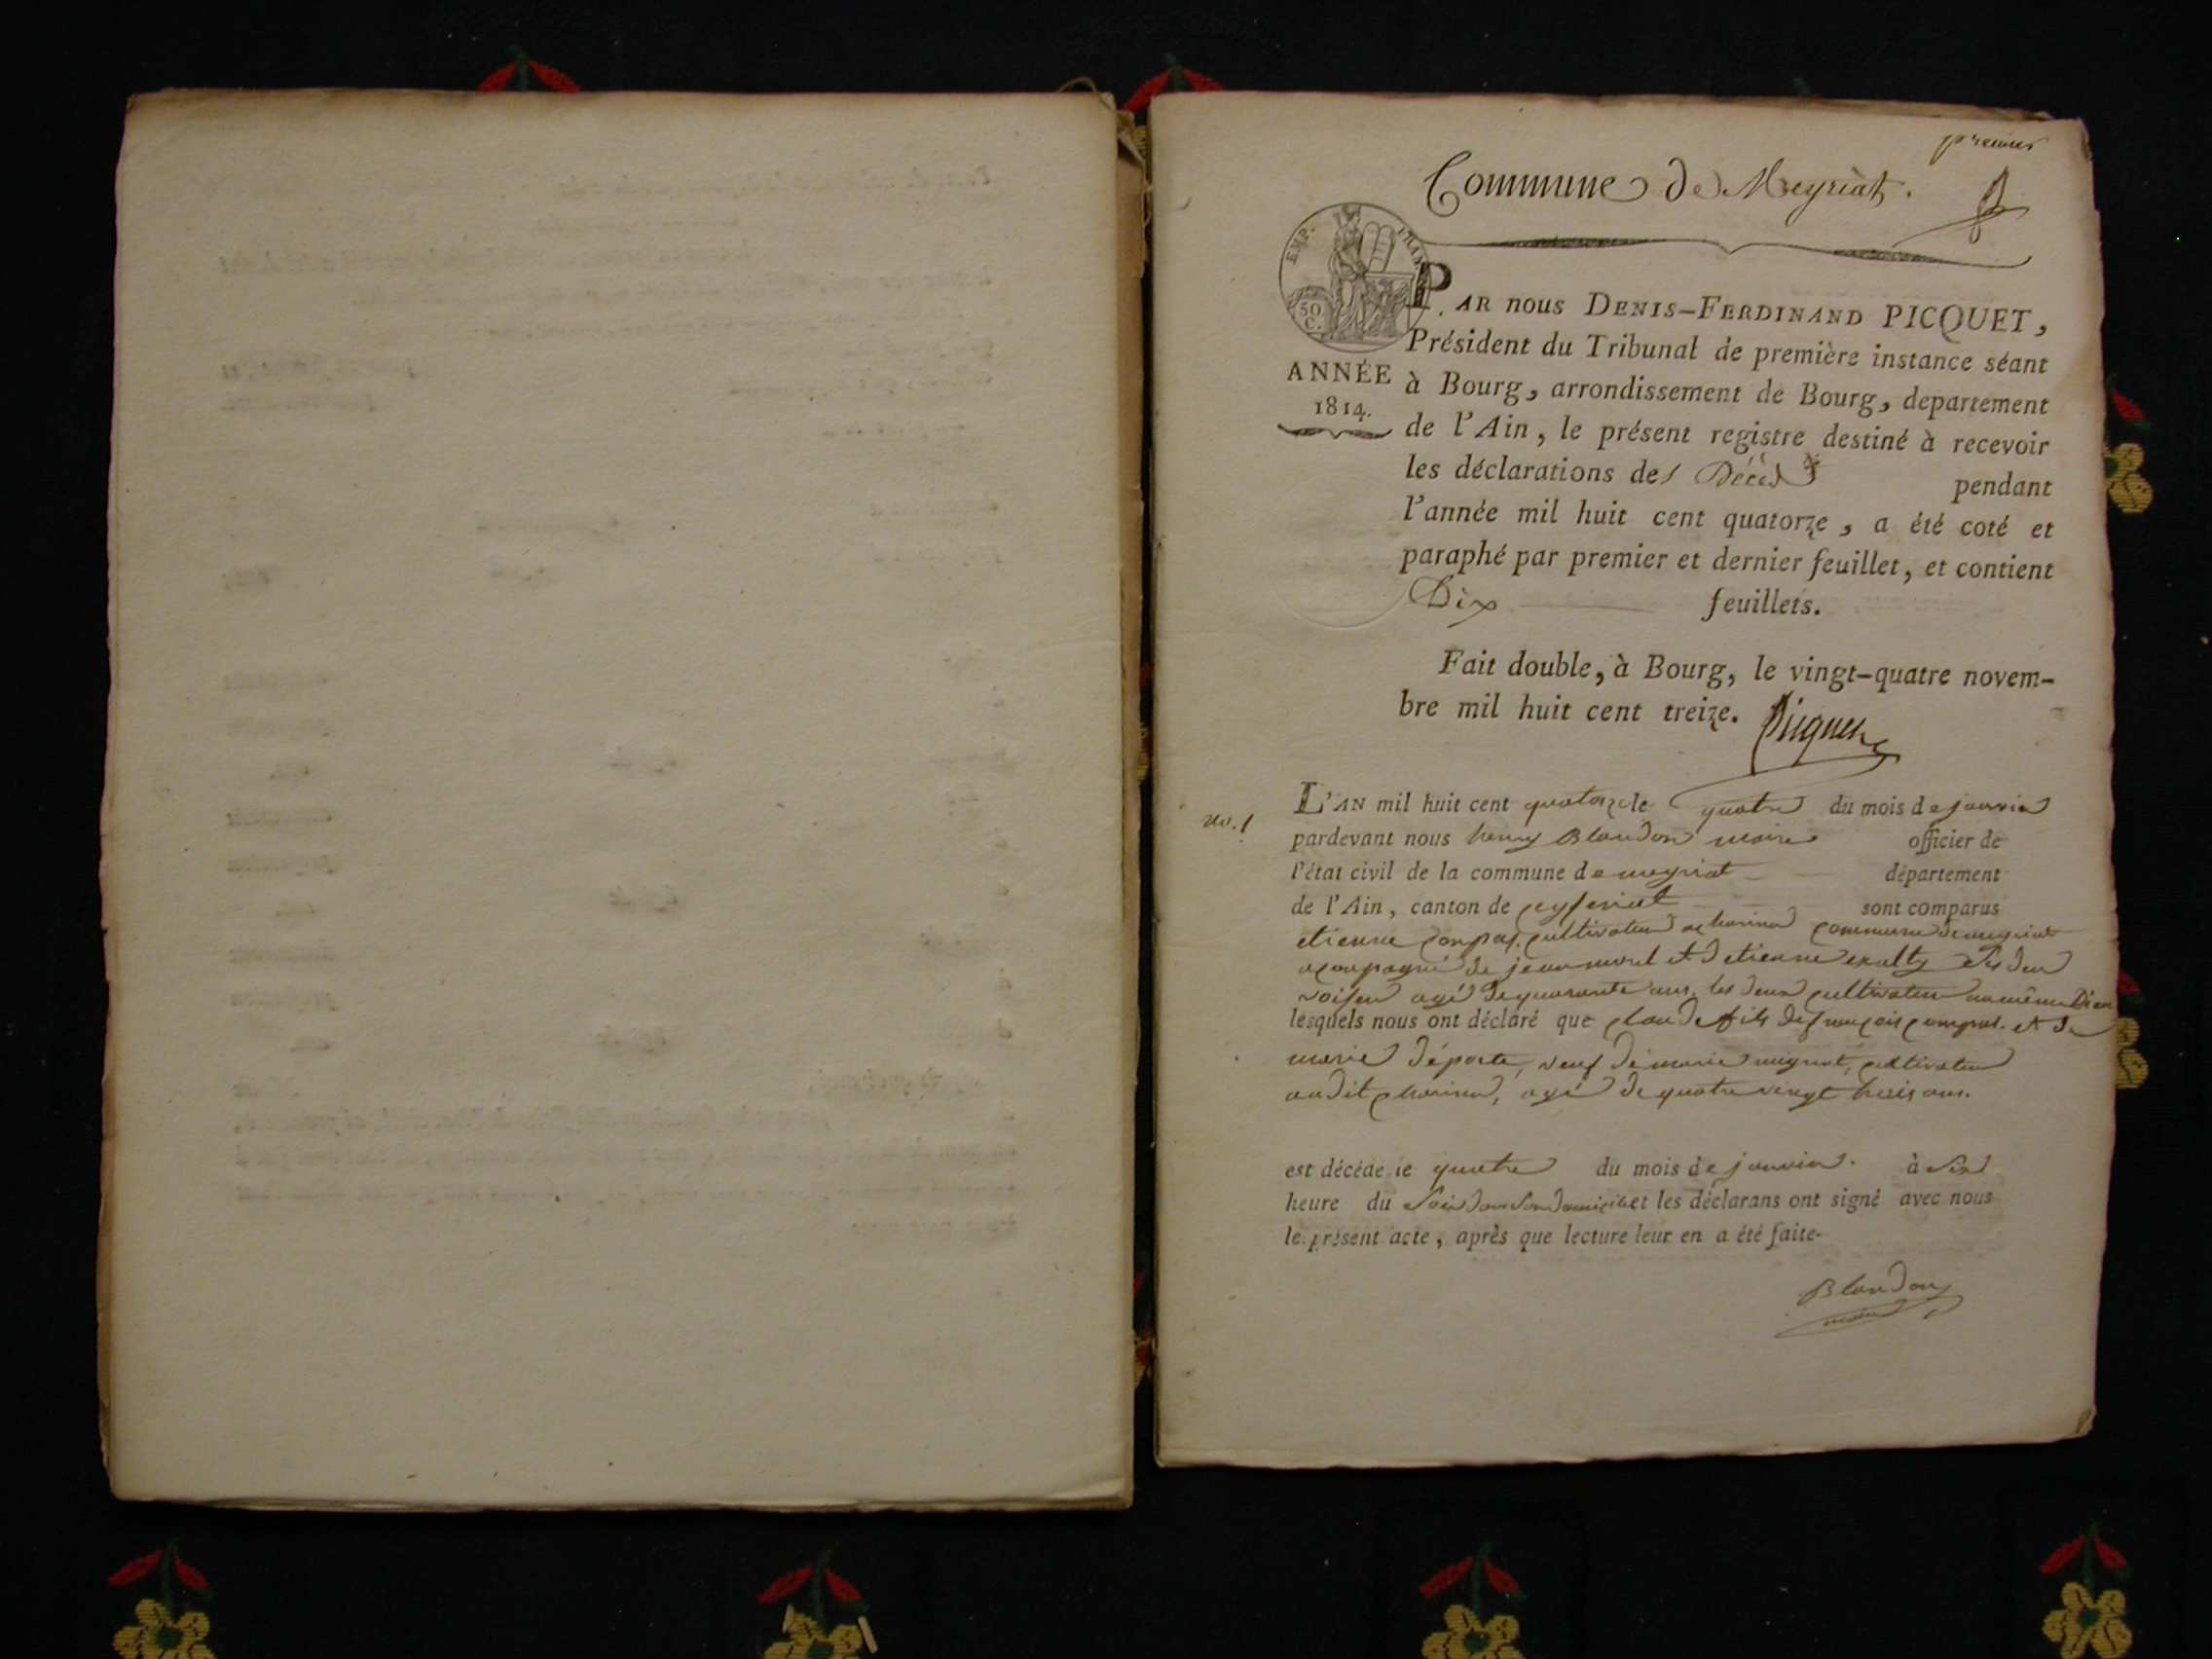 premier
Commune de Meyriat.
EMP. FRAN.
50 C.
PAR nous DENIS-FERDINAND PICQUET,
Président du Tribunal de première instance séant
ANNÉE
1814.
à Bourg, arrondissement de Bourg, departement
de l'Ain, le présent registre destiné à recevoir
les déclarations des Décès pendant
l'année mil huit cent quatorze, a été coté et
paraphé par premier et dernier feuillet, et contient
Dix feuillets.
Fait double, à Bourg, le vingt-quatre novem-
bre mil huit cent treize. Picquet
no. 1
L'AN mil huit cent quatorze le quatre du mois de janvier
pardevant nous henry Blandon maire officier de
l'état civil de la commune de meyriat département
de l'Ain, canton de ceyseriat sont comparus
etienne compas cultivateur commune de meyriat
acompagné de jean morel et detienne
agé de quarante ans, les deux cultivateur au même
lesquels nous ont déclaré que claude fils de françois compas. et de
marie déporte, veuf de marie mignot, cultivateur
audit charinas, agé de quatre vingt trois ans.
est décédé le quatre du mois de janvier. à six
heure du soir dans son domicile et les déclarans ont signé avec nous
le présent acte, après que lecture leur en a été faite.
Blandon
maire